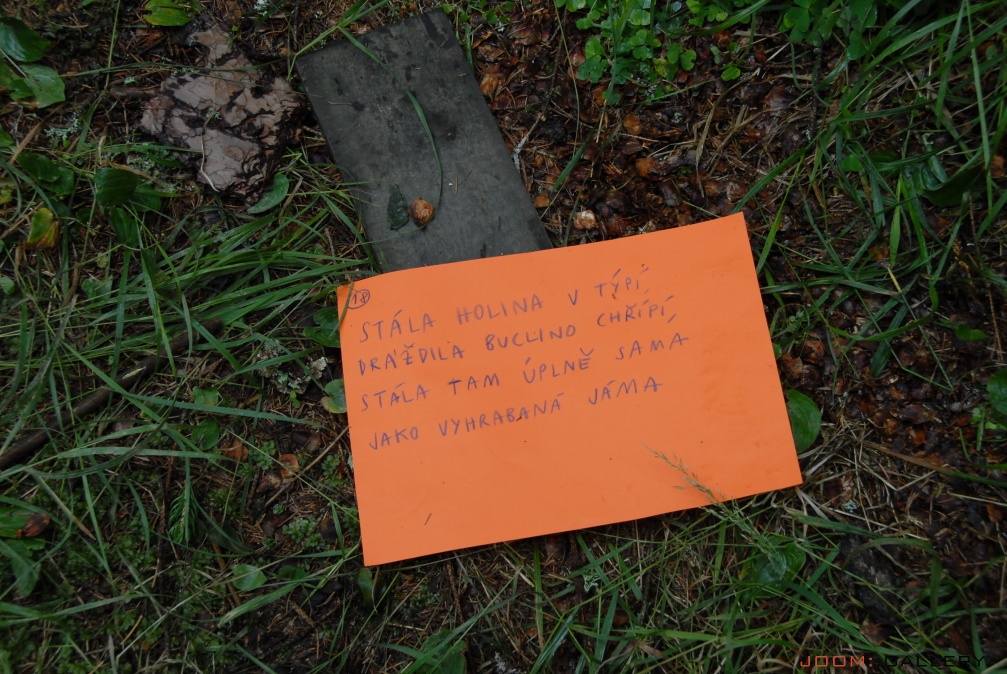 18
STÁLA HOLINA V TÝPÍ,
DRÁŽDILA BUCLINO CHŘÍPÍ,
STÁLA TAM ÚPLNĚ SAMA
JAKO VYHRABANÁ JÁMA
JOOM:GALLERY